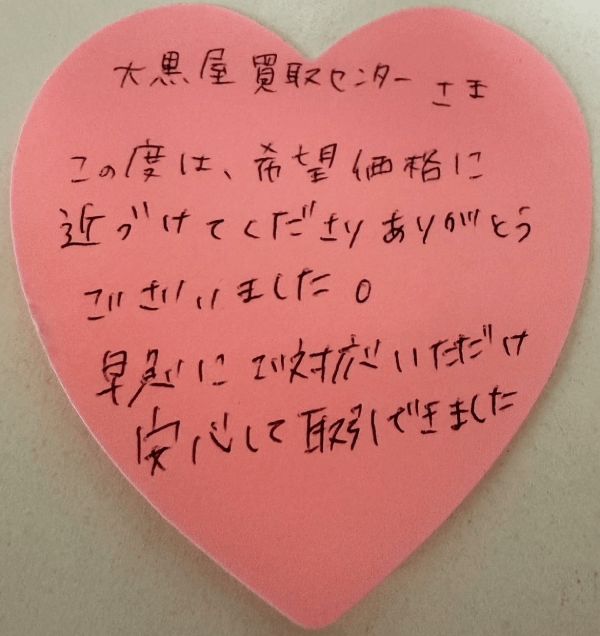 大黒屋買取センターさま
この度は、希望価格に
近づけてくださりありがとう
ございました。
早急にご対応いただけ
安心して取引できました